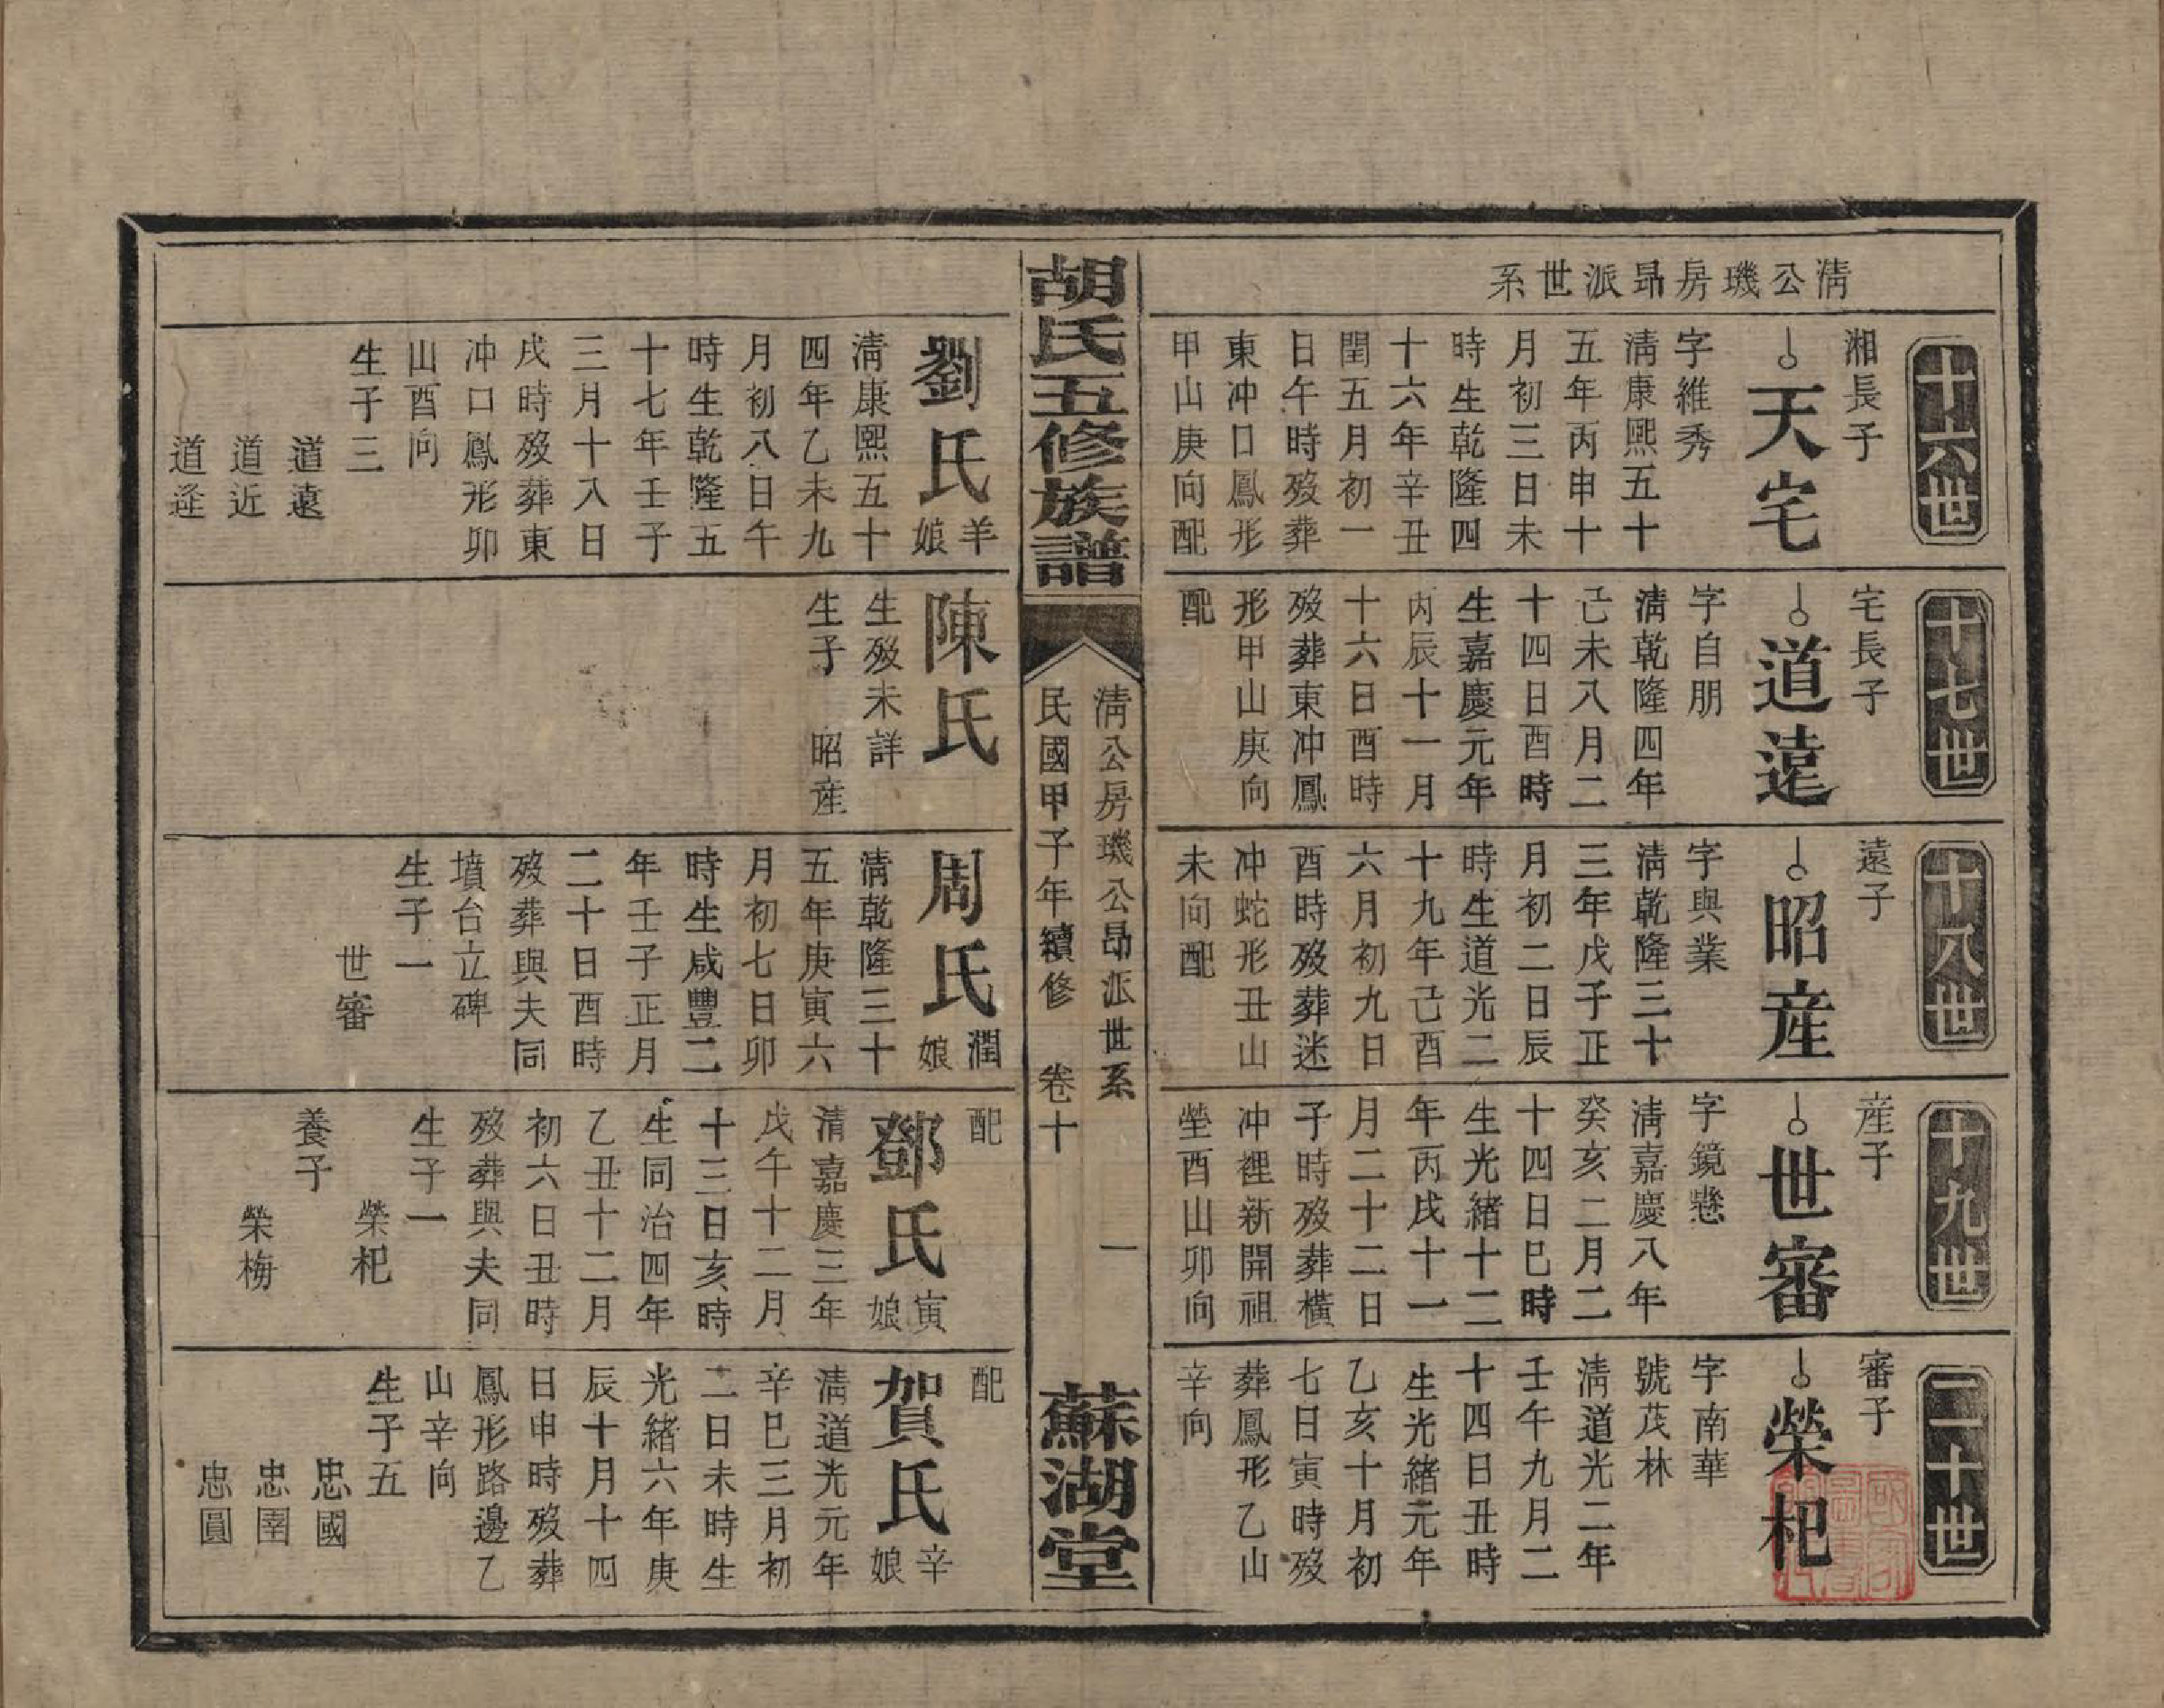 清公璣房昻派世系
十六世
湘長子
天宅
字維秀
清康熙五十
五年丙申十
月初三日未
時生乾隆四
十六年辛丑
閏五月初一
日午時殁葬
東冲口鳳形
甲山庚向配
十七世
宅長子
道遠
字自朋
清乾隆四年
己未八月二
十四日酉時
生嘉慶元年
丙辰十一月
十六日酉時
殁葬東冲鳳
形甲山庚向
配
十八世
遠子
昭産
字與業
清乾隆三十
三年戊子正
月初二日辰
時生道光二
十九年己酉
六月初九日
酉時殁葬迷
冲蛇形丑山
未向配
十九世
産子
世審
字鏡懸
清嘉慶八年
癸亥二月二
十四日巳時
生光緒十二
年丙戌十一
月二十二日
子時殁葬橫
冲裡新開祖
塋酉山卯向
二十世
審子
榮杞
字南華
號茂林
清道光二年
壬午九月二
十四日丑時
生光緒元年
乙亥十月初
七日寅時殁
葬鳳形乙山
辛向
胡氏五修族譜
清公房璣公昻派世系
一
民國甲子年續修 卷十
蘇湖堂
劉氏羊娘
清康熙五十
四年乙未九
月初八日午
時生乾隆五
十七年壬子
三月十八日
戌時殁葬東
冲口鳳形卯
山酉向
生子三
道遠
道近
道逵
陳氏
生殁未詳
生子 昭産
周氏潤娘
清乾隆三十
五年庚寅六
月初七日卯
時生咸豐二
年壬子正月
二十日酉時
殁葬與夫同
墳台立碑
生子一
世審
配
鄧氏寅娘
清嘉慶三年
戊午十二月
十三日亥時
生同治四年
乙丑十二月
初六日丑時
殁葬與夫同
生子一
榮杞
養子
榮梅
配
賀氏辛娘
清道光元年
辛巳三月初
二日未時生
光緒六年庚
辰十月十四
日申時殁葬
鳳形路邊乙
山辛向
生子五
忠國
忠圉
忠圓